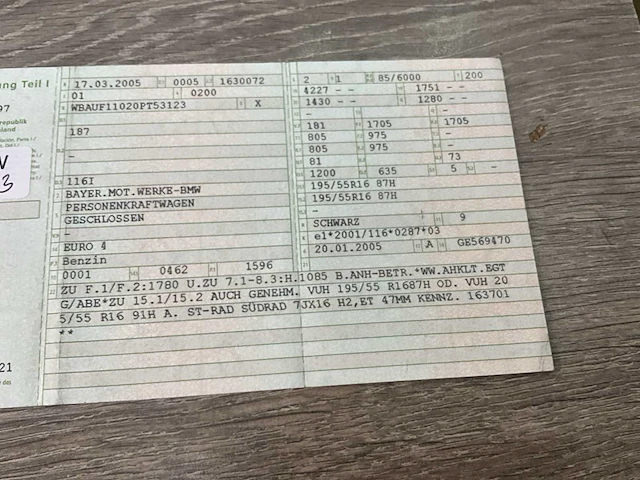 ng Teil I
97
republik
land
V
3
21
17.03.2005 0005 1630072
01 0200
WBAUF11020PT53123 X
187
–
116I
BAYER.MOT.WERKE-BMW
PERSONENKRAFTWAGEN
GESCHLOSSEN
–
EURO 4
Benzin
0001 0462 1596
2 1 85/6000 200
4227 – – 1751 – –
1430 – – 1280 – –
– –
181 1705 1705
805 975 –
805 975 –
81 73
1200 635 5 –
195/55R16 87H
195/55R16 87H
–
SCHWARZ 9
e1*2001/116*0287*03
20.01.2005 A GE569470
ZU F.1/F.2:1780 U.ZU 7.1-8.3:H.1085 B.ANH-BETR.*WW.AHKLT.EGT
G/ABE*ZU 15.1/15.2 AUCH GENEHM. VUH 195/55 R1687H OD. VUH 20
5/55 R16 91H A. ST-RAD SÜDRAD 7JX16 H2,ET 47MM KENNZ. 163701
**